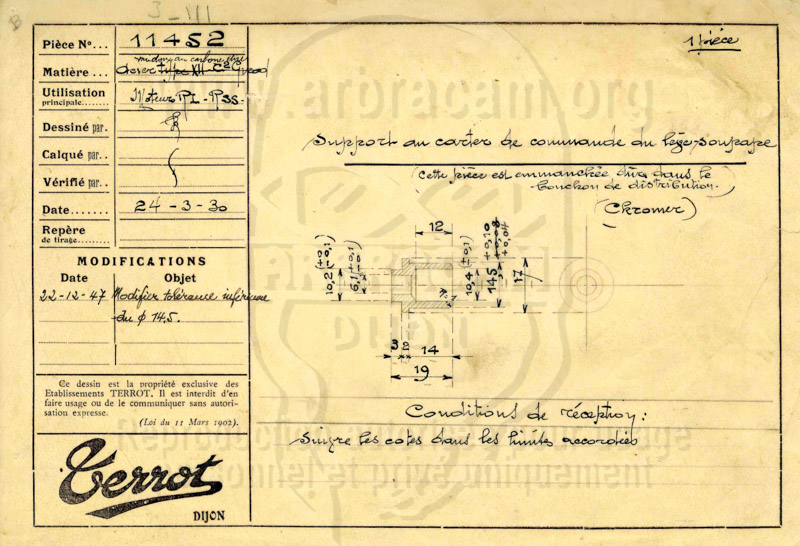 3-III
Pièce No... 11452
Matière ... Acier type XII C2 Gvood
Utilisation
principale........ Moteurs RL - RSS-
Dessiné par.
Calqué par..
Vérifié par..
Date ........ 24-3-30
Repère
de tirage........
MODIFICATIONS
Date Objet
22-12-47 Modifier tolérance inférieure
du φ 14,5.
Ce dessin est la propriété exclusive des
Etablissements TERROT. Il est interdit d'en
faire usage ou de le communiquer sans autori-
sation expresse.
(Loi du 11 Mars 1902).
Terrot
DIJON
1 pièce
Support au carter de commande du lève-soupape
(Cette pièce est emmanchée dur dans le
bouchon de distribution.)
(Chromer)
12
10,2 (+0 -0,1)
6,1 +0,1
10,4 (+0 -0,1)
14,5 +0,10 +0,08 +0,04
17
3 2 14
19
Conditions de réception:
Suivre les cotes dans les limites accordées
www.arbracam.org
ARBRACAM
DIJON
Reproduction
personnel et privé uniquement